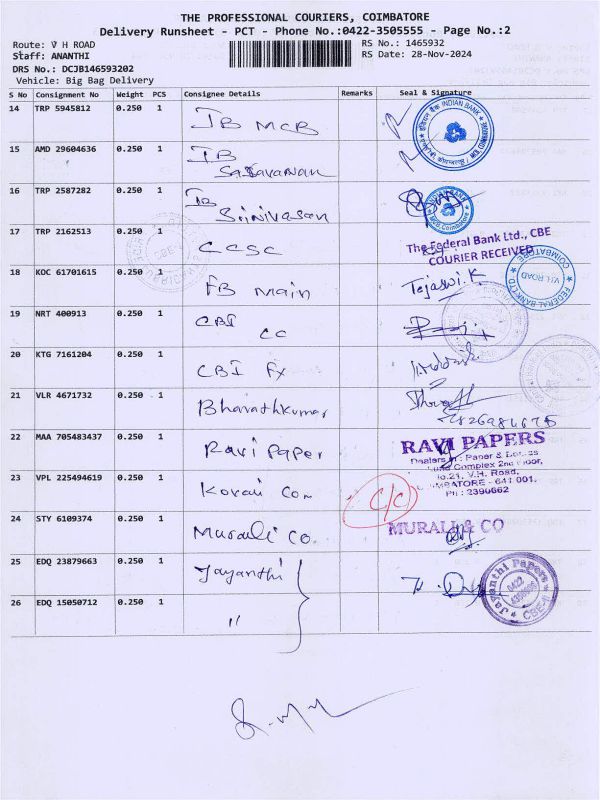 THE PROFESSIONAL COURIERS, COIMBATORE
Delivery Runsheet - PCT - Phone No.:0422-3505555 - Page No.:2
Route: V H ROAD
RS No.: 1465932
Staff: ANANTHI
RS Date: 28-Nov-2024
DRS No.: DCJB146593202
Vehicle: Big Bag Delivery
S No Consignment No Weight PCS Consignee Details Remarks Seal & Signature
14 TRP 5945812 0.250 1 IB MCB
INDIAN BANK
15 AMD 29604636 0.250 1 IB
Saravanan
16 TRP 2587282 0.250 1 IB
Srinivasan
INDIAN BANK
17 TRP 2162513 0.250 1 CCSC
The Federal Bank Ltd., CBE
COURIER RECEIVED
18 KOC 61701615 0.250 1 FB Main Tejaswi.K
FEDERAL BANK LTD
V.H. ROAD
COIMBATORE
19 NRT 400913 0.250 1 CBI
CC
20 KTG 7161204 0.250 1 CBI Fx
21 VLR 4671732 0.250 1 Bharathkumar
22 MAA 705483437 0.250 1 Ravi Paper
RAVI PAPERS
Dealers in : Paper & Boards
Complex 2nd Floor,
No.21, V.H. Road,
COIMBATORE - 641 001.
PH : 2390662
23 VPL 225494619 0.250 1 Kovai Com C/C
24 STY 6109374 0.250 1 Murali Co.
MURALI & CO
25 EDQ 23879663 0.250 1 Jayanthi
Jayanthi Papers
0422
CBE-1
26 EDQ 15050712 0.250 1 "